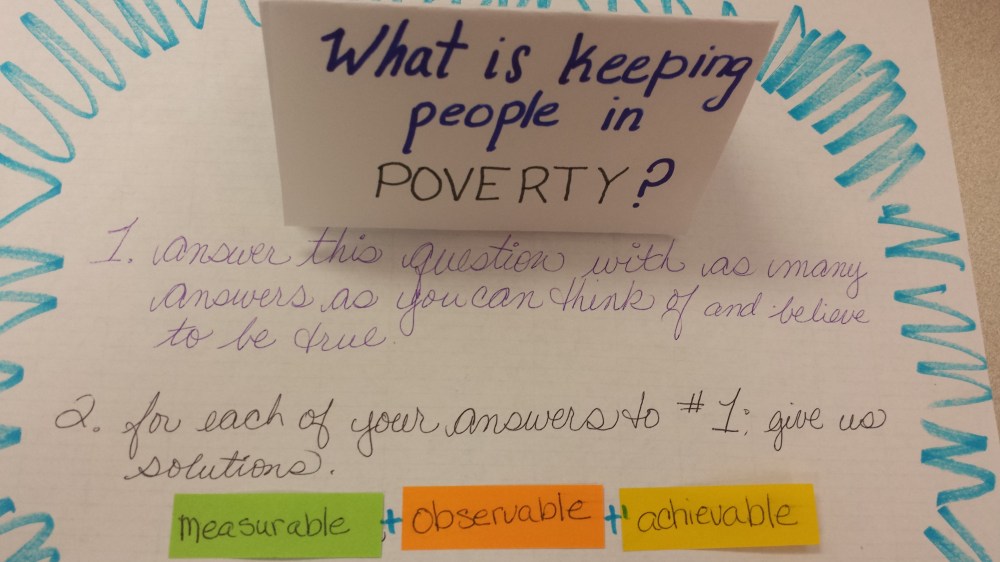 What is keeping
people in
POVERTY?
1. answer this question with as many
answers as you can think of and believe
to be true.
2. for each of your answers to #1: give us
solutions.
measurable + observable + achievable